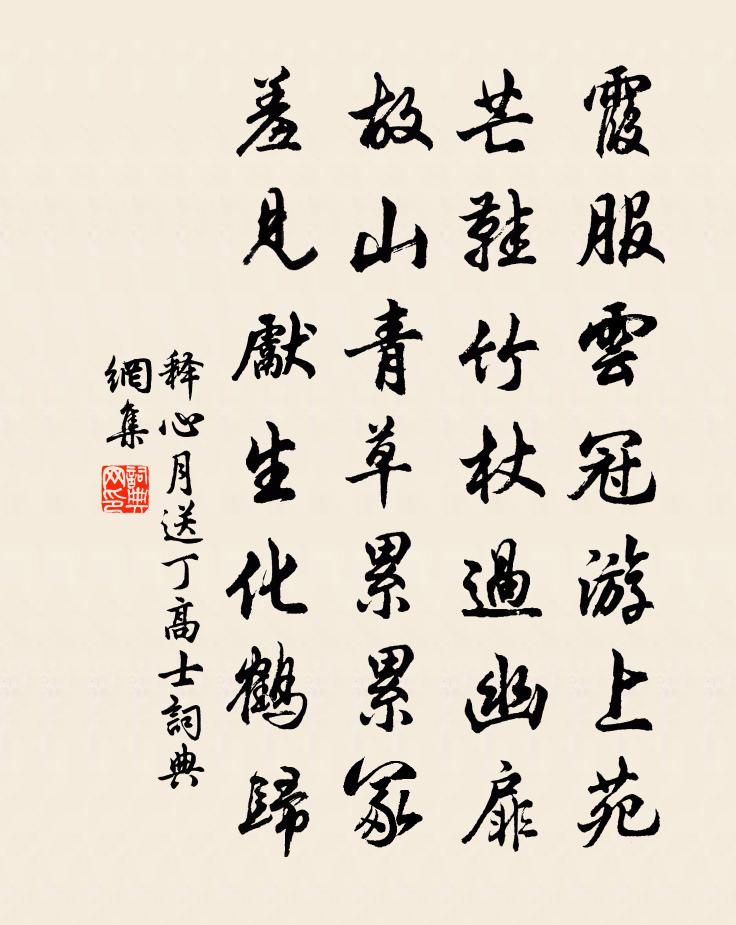 霞服雲冠游上苑
芒鞋竹杖過幽扉
故山青草累累冢
羞見獻生化鶴歸
释心月送丁高士詞典
網集
詞典
网印